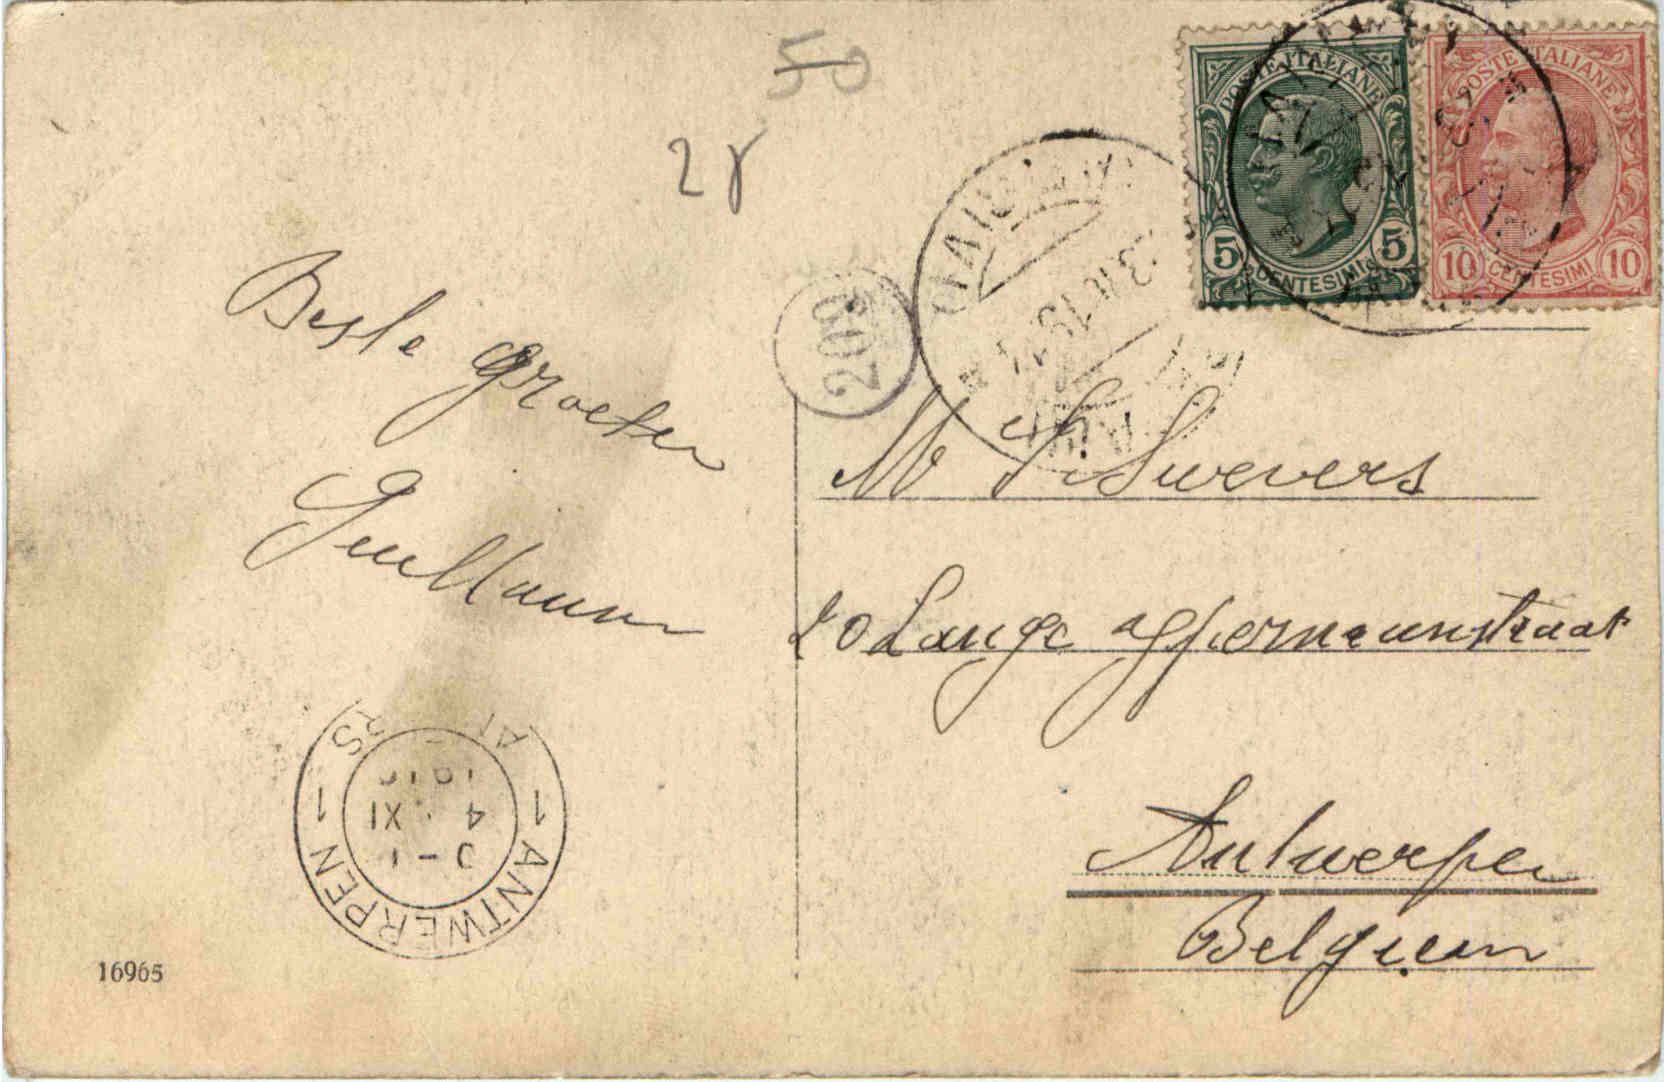 50
28
POSTE ITALIANE
5 CENTESIMI 5
POSTE ITALIANE
10 CENTESIMI 10
209
Beste groeten
Guillaume
Mr Swevers
20 Lange
Antwerpen
Belgien
1 ANTWERPEN 1
4 XI
16965